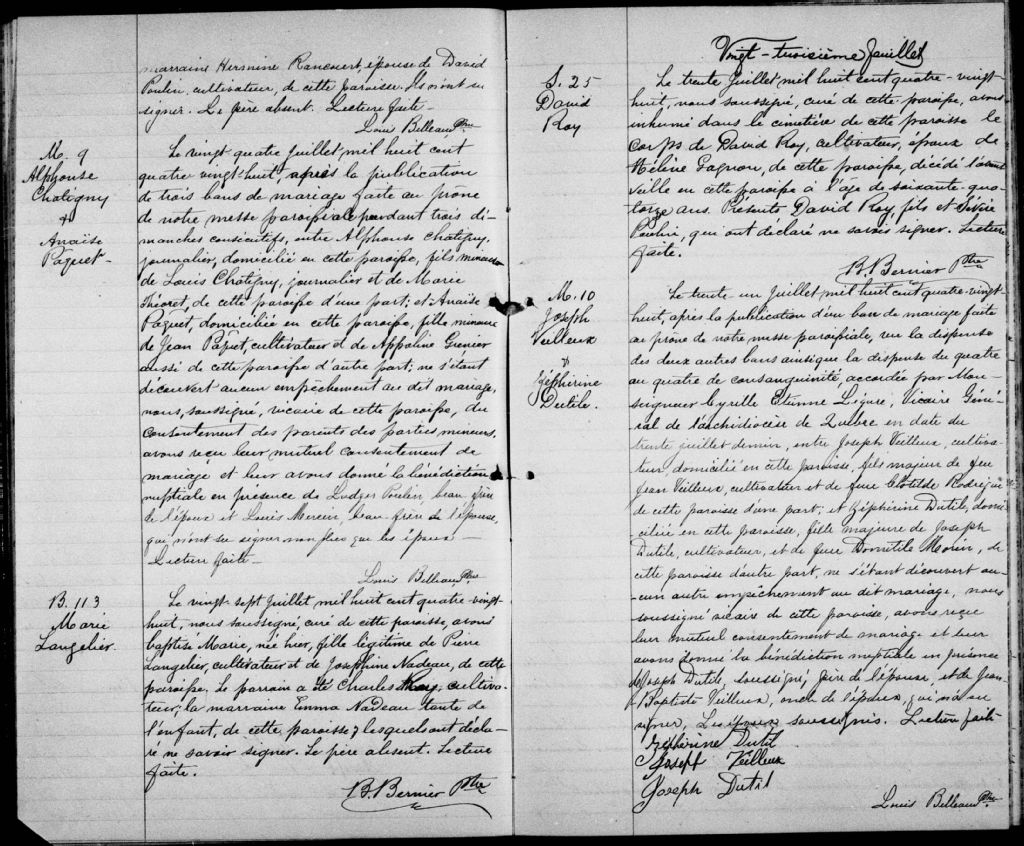 marraine Hermine Rancourt, épouse de David
Poulin, cultivateur, de cette paroisse. Ils n'ont su
signer. Le père absent. Lecture faite -
Louis Belleau Ptre
M. 9
Alphonse
Chatigny
&
Anaïse
Paquet -
Le vingt quatre Juillet mil huit cent
quatre vingt huit, après la publication
de trois bans de mariage faite au prône
de notre messe paroissiale pendant trois di-
manches consécutifs, entre Alphonse Chatigny,
journalier, domicilié en cette paroisse, fils mineur
de Louis Chatigny, journalier et de Marie
Théoret, de cette paroisse d'une part; et Anaïse
Paquet, domiciliée en cette paroisse, fille mineure
de Jean Paquet, cultivateur et de Appoline Grenier
aussi de cette paroisse d'autre part; ne s'étant
découvert aucun empêchement au dit mariage,
nous, soussigné, vicaire de cette paroisse, du
consentement des parents des parties mineures,
avons reçu leur mutuel consentement de
mariage et leur avons donné la bénédiction
nuptiale en présence de Ludger Poulin, beau frère
de l'époux et Louis Mercier, beau-frère de l'épouse,
qui n'ont su signer non plus que les époux -
Lecture faite -
Louis Belleau Ptre
B. 113
Marie
Langelier.
Le vingt sept Juillet mil huit cent quatre-vingt-
huit, nous soussigné, curé de cette paroisse, avons
baptisé Marie, née hier, fille légitime de Pierre
Langelier, cultivateur et de Joséphine Nadeau, de cette
paroisse. Le parrain a été Charles Roy, cultiva-
teur; la marraine Emma Nadeau tante de
l'enfant, de cette paroisse, lesquels ont décla-
ré ne savoir signer. Le père absent. Lecture
faite.
B. Bernier Ptre
Vingt-troisième feuillet
S. 25
David
Roy
Le trente Juillet mil huit cent quatre-vingt-
huit, nous soussigné, curé de cette paroisse, avons
inhumé dans le cimetière de cette paroisse le
corps de David Roy, cultivateur, époux de
Hélène Gagnon, de cette paroisse, décédé l'avant
veille en cette paroisse à l'âge de soixante-qua-
torze ans. Présents David Roy, fils et
Poulin, qui ont déclaré ne savoir signer. Lecture
faite.
B. Bernier Ptre
M. 10
Joseph
Veilleux
&
Zéphirine
Dutile.
Le trente-un Juillet mil huit cent quatre-vingt-
huit, après la publication d'un ban de mariage faite
au prône de notre messe paroissiale, vu la dispense
des deux autres bans ainsi que la dispense du quatre
au quatre de consanguinité accordée par Mon-
seigneur Cyrille Etienne Légaré, Vicaire Géné-
ral de l'archidiocèse de Québec en date du
trente juillet dernier, entre Joseph Veilleux, cultiva-
teur domicilié en cette paroisse, fils majeur de feu
Jean Veilleux, cultivateur et de feue Clotilde Rodrigue
de cette paroisse d'une part; et Zéphirine Dutile, domi-
ciliée en cette paroisse, fille majeure de Joseph
Dutile, cultivateur, et de feue Domitile Morin, de
cette paroisse d'autre part, ne s'étant découvert au-
-cun autre empêchement au dit mariage, nous
soussigné vicaire de cette paroisse, avons reçu
leur mutuel consentement de mariage et leur
avons donné la bénédiction nuptiale en présence
de Joseph Dutile, soussigné, père de l'épouse, et de Jean
Baptiste Veilleux, oncle de l'époux, qui n'a su
signer. Les époux soussignés. Lecture faite
Zéphirine Dutil
Joseph Veilleux
Joseph Dutil
Louis Belleau Ptre.